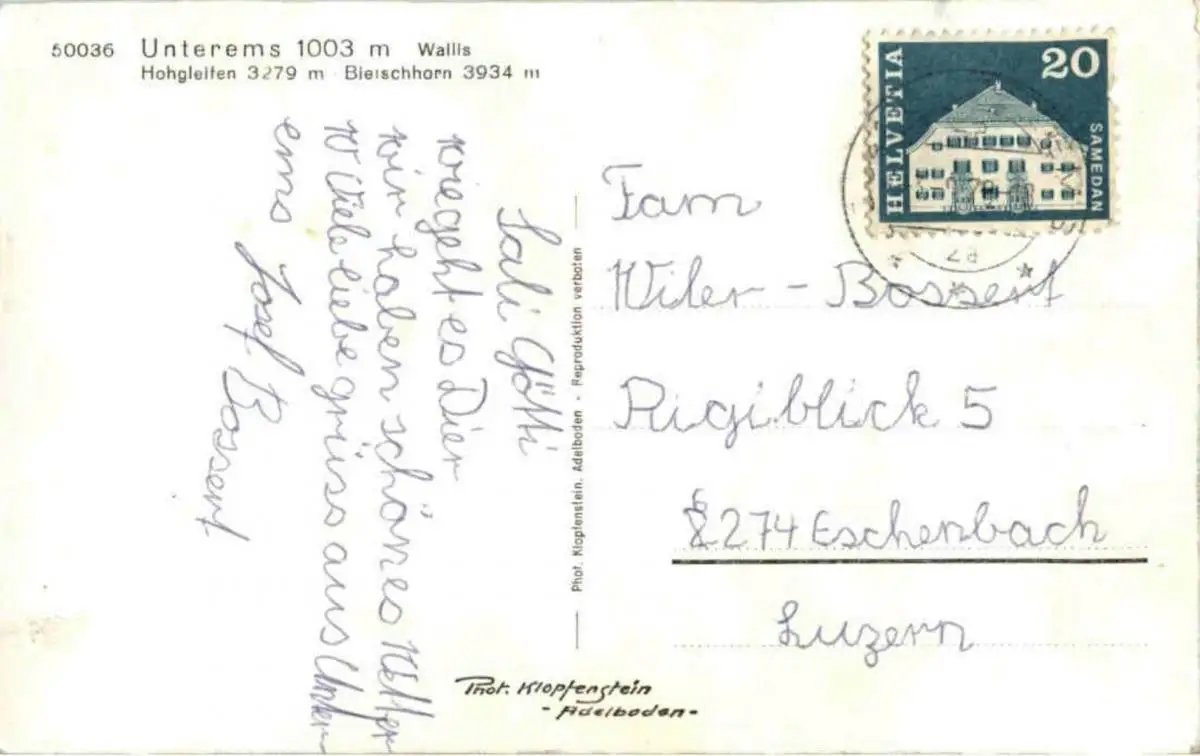 50036 Unterems 1003 m Wallis
Hohgleifen 3279 m Bietschhorn 3934 m
Sali Götti
wiegeht es Dier
wir haben schönes Wetter
Viele liebe grüss aus Unter
ems Josef Bossert
Phot. Klopfenstein, Adelboden - Reproduktion verboten
HELVETIA
20
SAMEDAN
Fam
Wiler - Bossert
Rigiblick 5
6274 Eschenbach
Luzern
Phot. Klopfenstein
- Adelboden -